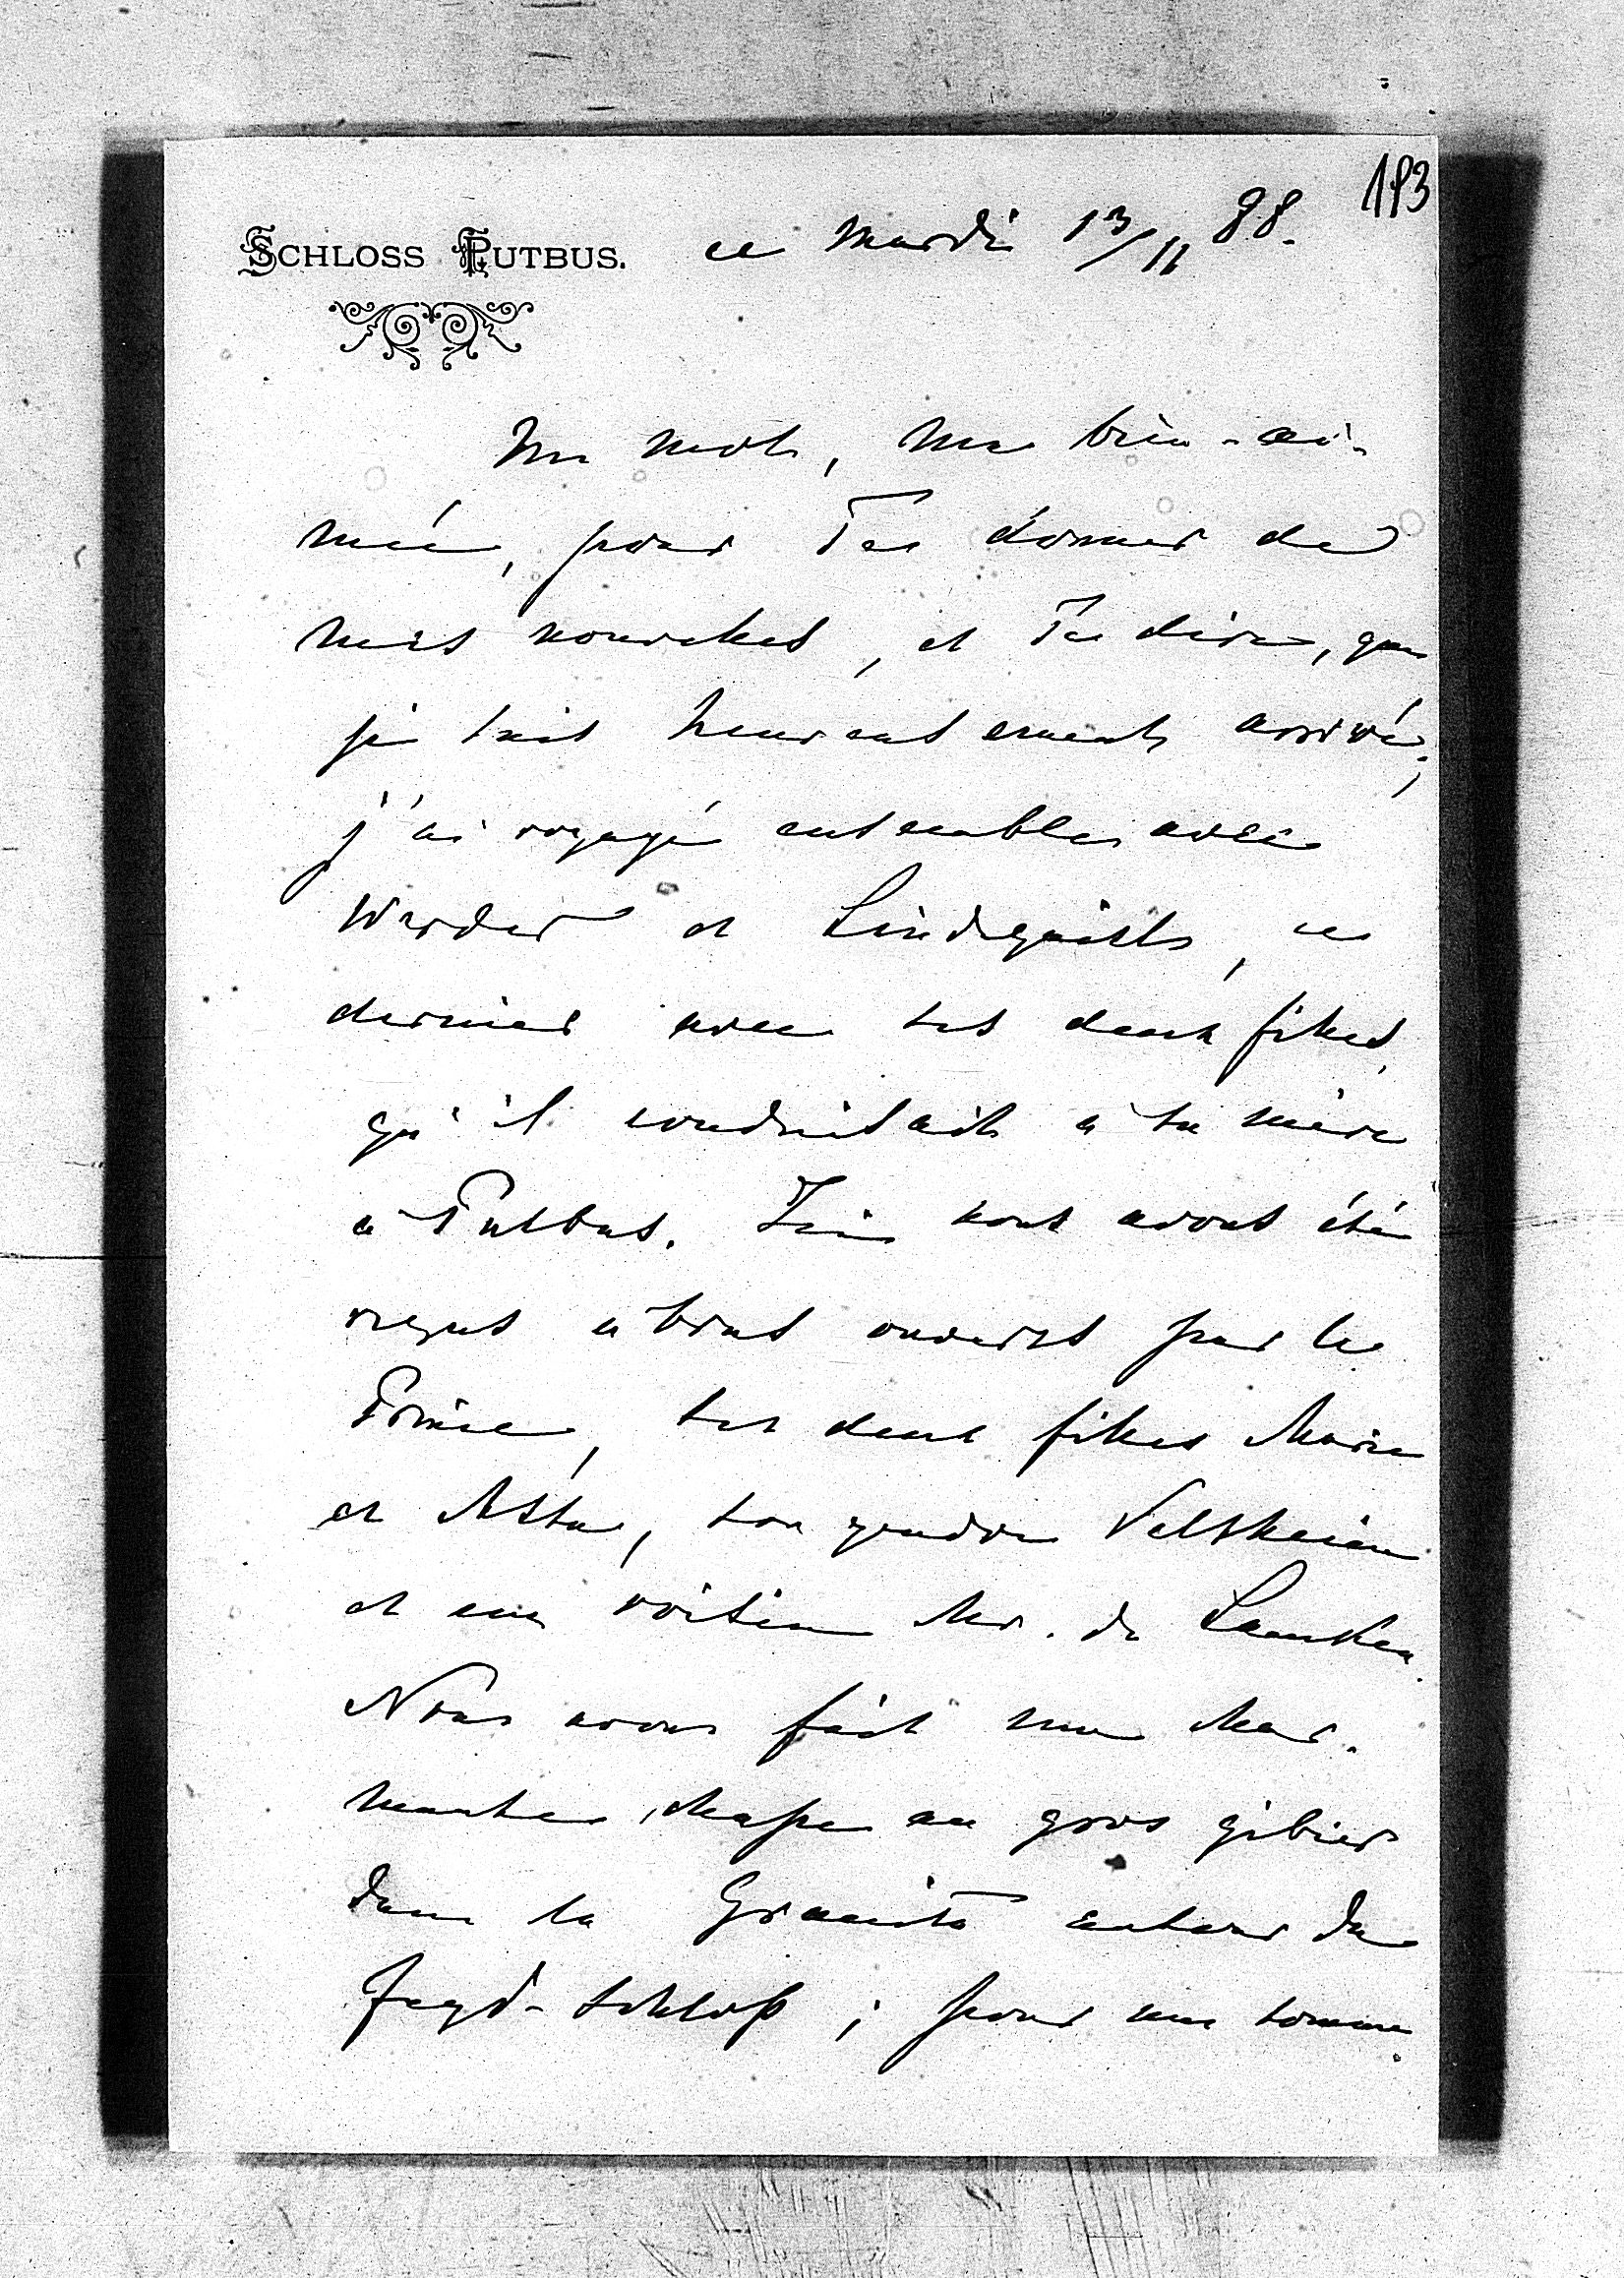 193
SCHLOSS PUTBUS. ce mardi 13/11 88.
Un mot, ma bien-ai-
mée, pour Te donner de
mes nouvelles, et Te dire, que
je suis heureusement arrivé;
j'ai voyagé ensemble avec
Werder et Lindequist, ce
dernier avec ses deux filles,
qu'il conduisait à sa mère
à Putbus. Ici nous avons été
reçus à bras ouverts par le
Prince, ses deux filles Marie
et Asta, son gendre Veltheim
et un voisin Mr. de Lanken.
Nous avons fait une char-
mante chasse au gros gibier
dans la Granitz autour du
Jagd-schloß; pour une somme